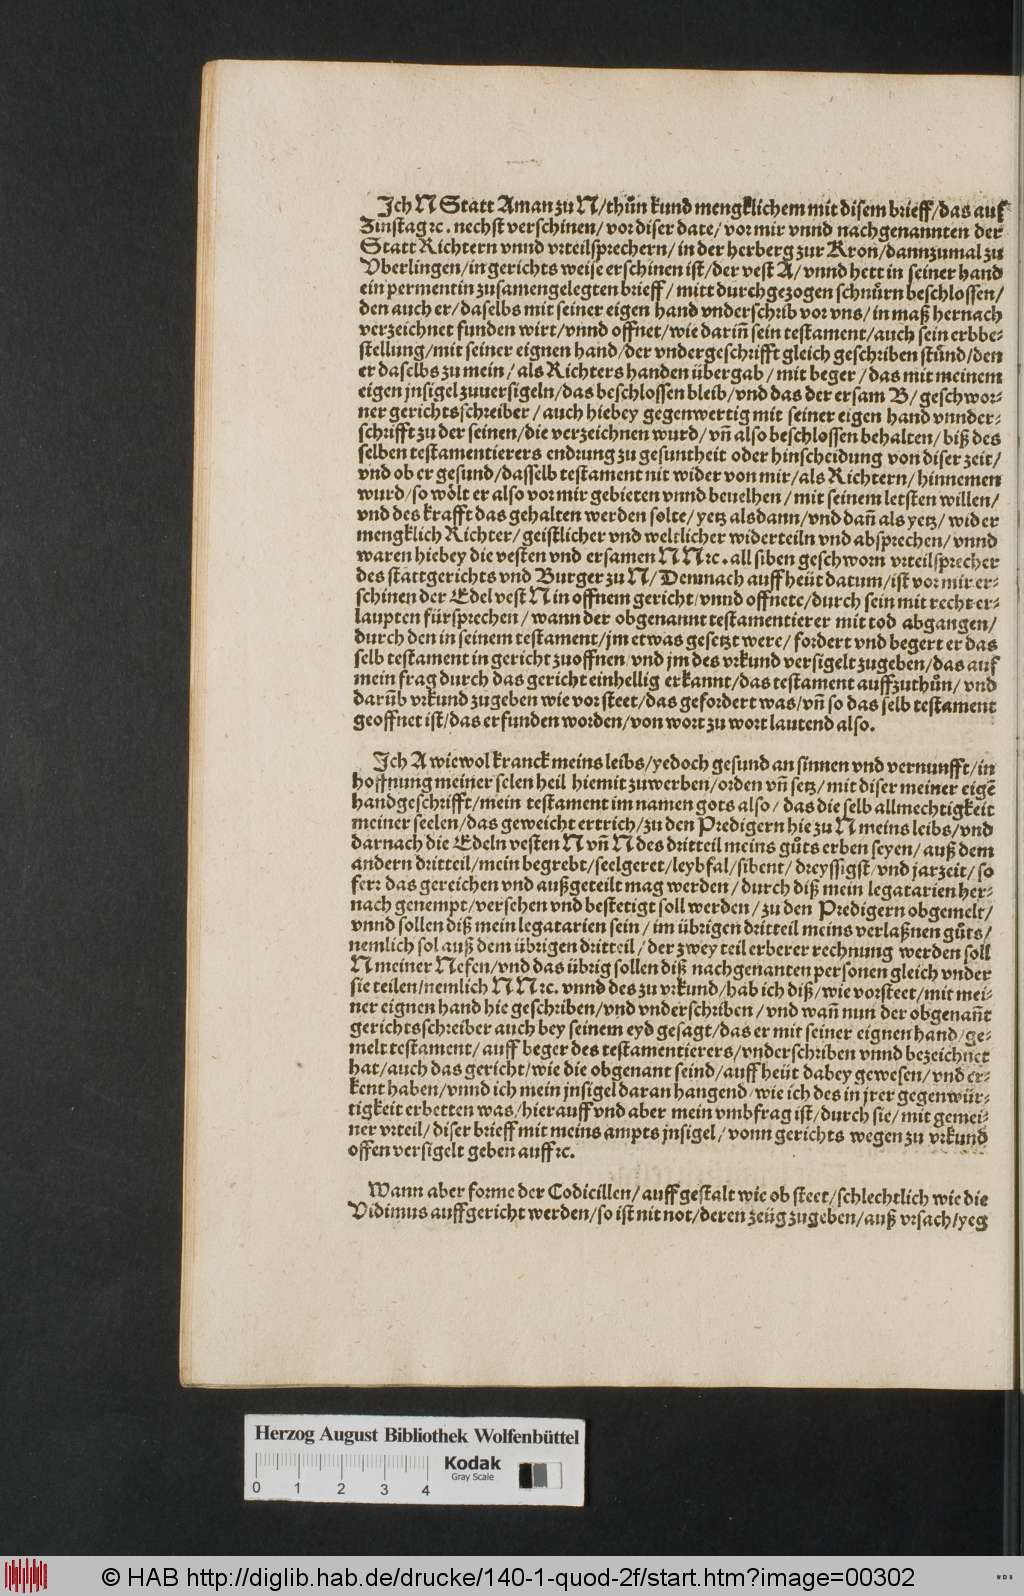 Jch N Statt Aman zu N/thůn kund mengklichem mit disem brieff/das auf
Zinstag ꝛc. nechst verschinen/vor diser date/vor mir vnnd nachgenannten der
Statt Richtern vnnd vrteilsprechern/in der herberg zur Kron/dannzumal zu
Vberlingen/in gerichts weise erschinen ist/der vest A/vnnd hett in seiner hand
ein permentin zusamengelegten brieff/mitt durchgezogen schnůrn beschlossen/
den auch er/daselbs mit seiner eigen hand vnderschrib vor vns/in maß hernach
verzeichnet funden wirt/vnnd offnet/wie darin̄ sein testament/auch sein erbbe-
stellung/mit seiner eignen hand/der vndergeschrifft gleich geschriben stůnd/den
er daselbs zu mein/als Richters handen übergab/mit beger/das mit meinem
eigen jnsigel zuuersigeln/das beschlossen bleib/vnd das der ersam B/geschwor-
ner gerichtsschreiber/auch hiebey gegenwertig mit seiner eigen hand vnnder-
schrifft zu der seinen/die verzeichnen wurd/vn̄ also beschlossen behalten/biß des
selben testamentierers endrung zu gesuntheit oder hinscheidung von diser zeit/
vnd ob er gesund/dasselb testament nit wider von mir/als Richtern/hinnemen
wurd/so wölt er also vor mir gebieten vnnd beuelhen/mit seinem letsten willen/
vnd des krafft das gehalten werden solte/yetz alsdann/vnd dan̄ als yetz/wider
mengklich Richter/geistlicher vnd weltlicher widerteiln vnd absprechen/vnnd
waren hiebey die vesten vnd ersamen N N ꝛc. all siben geschworn vrteilsprecher
des stattgerichts vnd Burger zu N/Demnach auff heüt datum/ist vor mir er-
schinen der Edel vest N in offnem gericht/vnnd offnete/durch sein mit recht er-
laupten fürsprechen/wann der obgenannt testamentierer mit tod abgangen/
durch den in seinem testament/jm etwas gesetzt were/fordert vnd begert er das
selb testament in gericht zuoffnen/vnd jm des vrkund versigelt zugeben/das auf
mein frag durch das gericht einhellig erkannt/das testament auffzuthůn/vnd
darūb vrkund zugeben wie vor steet/das gefordert was/vn̄ so das selb testament
geoffnet ist/das erfunden worden/von wort zu wort lautend also.
Jch A wiewol kranck meins leibs/yedoch gesund an sinnen vnd vernunfft/in
hoffnung meiner selen heil hiemit zuwerben/orden vn̄ setz/mit diser meiner eigē
handgeschrifft/mein testament im namen gots also/das die selb allmechtigkeit
meiner seelen/das geweicht ertrich/zu den Predigern hie zu N meins leibs/vnd
darnach die Edeln vesten N vn̄ N des dritteil meins gůts erben seyen/auß dem
andern dritteil/mein begrebt/seelgeret/leybfal/sibent/dreyssigst/vnd jarzeit/so
ferr das gereichen vnd außgeteilt mag werden/durch diß mein legatarien her-
nach genempt/versehen vnd bestetigt soll werden/zu den Predigern obgemelt/
vnnd sollen diß mein legatarien sein/im übrigen dritteil meins verlaßnen gůts/
nemlich sol auß dem übrigen dritteil/der zwey teil erberer rechnung werden soll
N meiner Nefen/vnd das übrig sollen diß nachgenanten personen gleich vnder
sie teilen/nemlich N N ꝛc. vnnd des zu vrkund/hab ich diß/wie vorsteet/mit mei-
ner eignen hand hie geschriben/vnd vnderschriben/vnd wan̄ nun der obgenan̄t
gerichtsschreiber auch bey seinem eyd gesagt/das er mit seiner eignen hand/ge-
melt testament/auff beger des testamentierers/vnderschriben vnnd bezeichnet
hat/auch das gericht/wie die obgenant seind/auff heüt dabey gewesen/vnd er-
kent haben/vnnd ich mein jnsigel daran hangend/wie ich des in jrer gegenwür-
tigkeit erbetten was/hierauff vnd aber mein vmbfrag ist/durch sie/mit gemei-
ner vrteil/diser brieff mit meins ampts jnsigel/vonn gerichts wegen zu vrkund
offen versigelt geben auff ꝛc.
Wann aber forme der Codicillen/auff gestalt wie ob steet/schlechtlich wie die
Vidimus auffgericht werden/so ist nit not/deren zeüg zugeben/auß vrsach/yeg
Herzog August Bibliothek Wolfenbüttel
Kodak
Gray Scale
0 1 2 3 4
© HAB http://diglib.hab.de/drucke/140-1-quod-2f/start.htm?image=00302